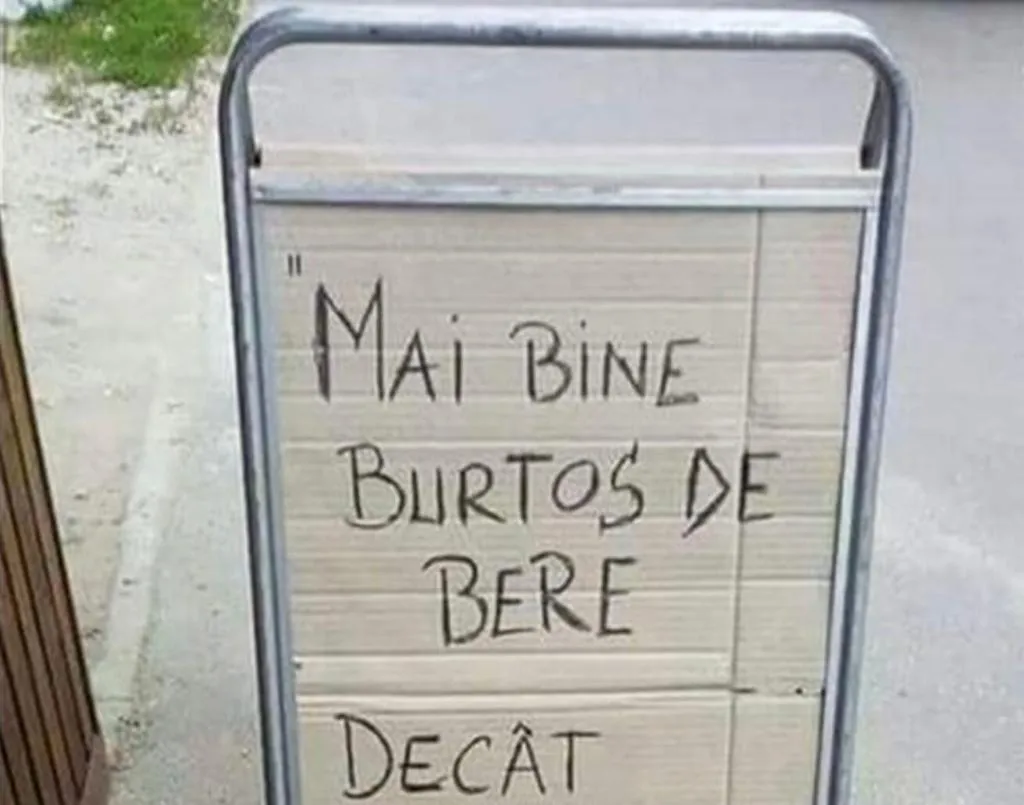 "MAi BiNE
BURTOS DE
BERE
DECÂT